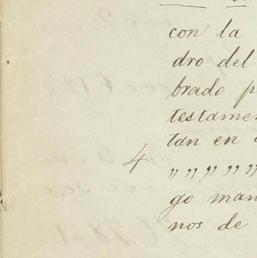 con la
dro del
brado p
testamen
tan en
4 „ „ „ „ „
go man
nos de